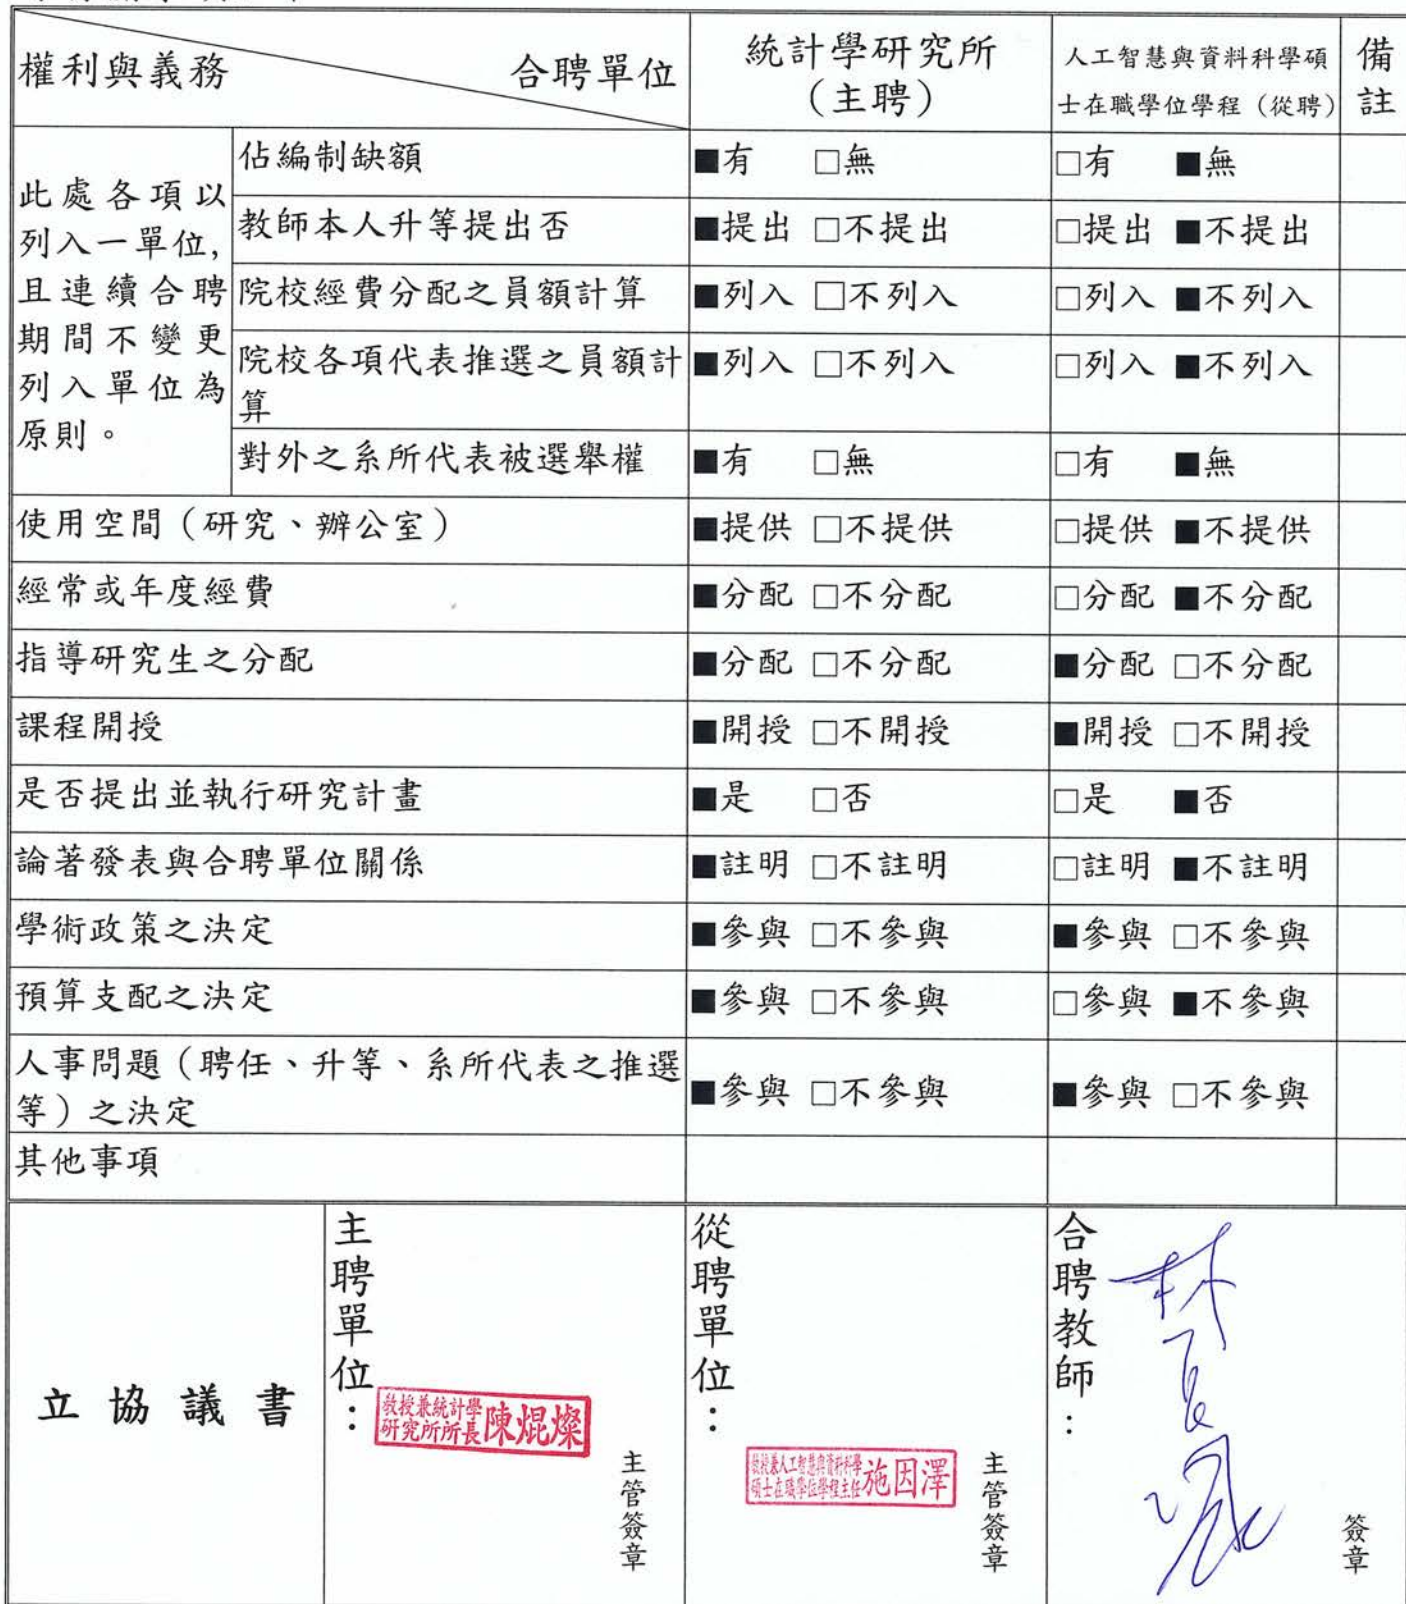 權利與義務 合聘單位 統計學研究所（主聘） 人工智慧與資料科學碩士在職學位學程（從聘） 備註
此處各項以列入一單位,且連續合聘期間不變更列入單位為原則。
佔編制缺額 ■有 □無 □有 ■無
教師本人升等提出否 ■提出 □不提出 □提出 ■不提出
院校經費分配之員額計算 ■列入 □不列入 □列入 ■不列入
院校各項代表推選之員額計算 ■列入 □不列入 □列入 ■不列入
對外之系所代表被選舉權 ■有 □無 □有 ■無
使用空間（研究、辦公室） ■提供 □不提供 □提供 ■不提供
經常或年度經費 ■分配 □不分配 □分配 ■不分配
指導研究生之分配 ■分配 □不分配 ■分配 □不分配
課程開授 ■開授 □不開授 ■開授 □不開授
是否提出並執行研究計畫 ■是 □否 □是 ■否
論著發表與合聘單位關係 ■註明 □不註明 □註明 ■不註明
學術政策之決定 ■參與 □不參與 ■參與 □不參與
預算支配之決定 ■參與 □不參與 □參與 ■不參與
人事問題（聘任、升等、系所代表之推選等）之決定 ■參與 □不參與 ■參與 □不參與
其他事項
立協議書
主聘單位：
教授兼統計學
研究所所長陳焜燦
主管簽章
從聘單位：
教授兼人工智慧與資料科學
碩士在職學位學程主任施因澤
主管簽章
合聘教師：
林
簽章